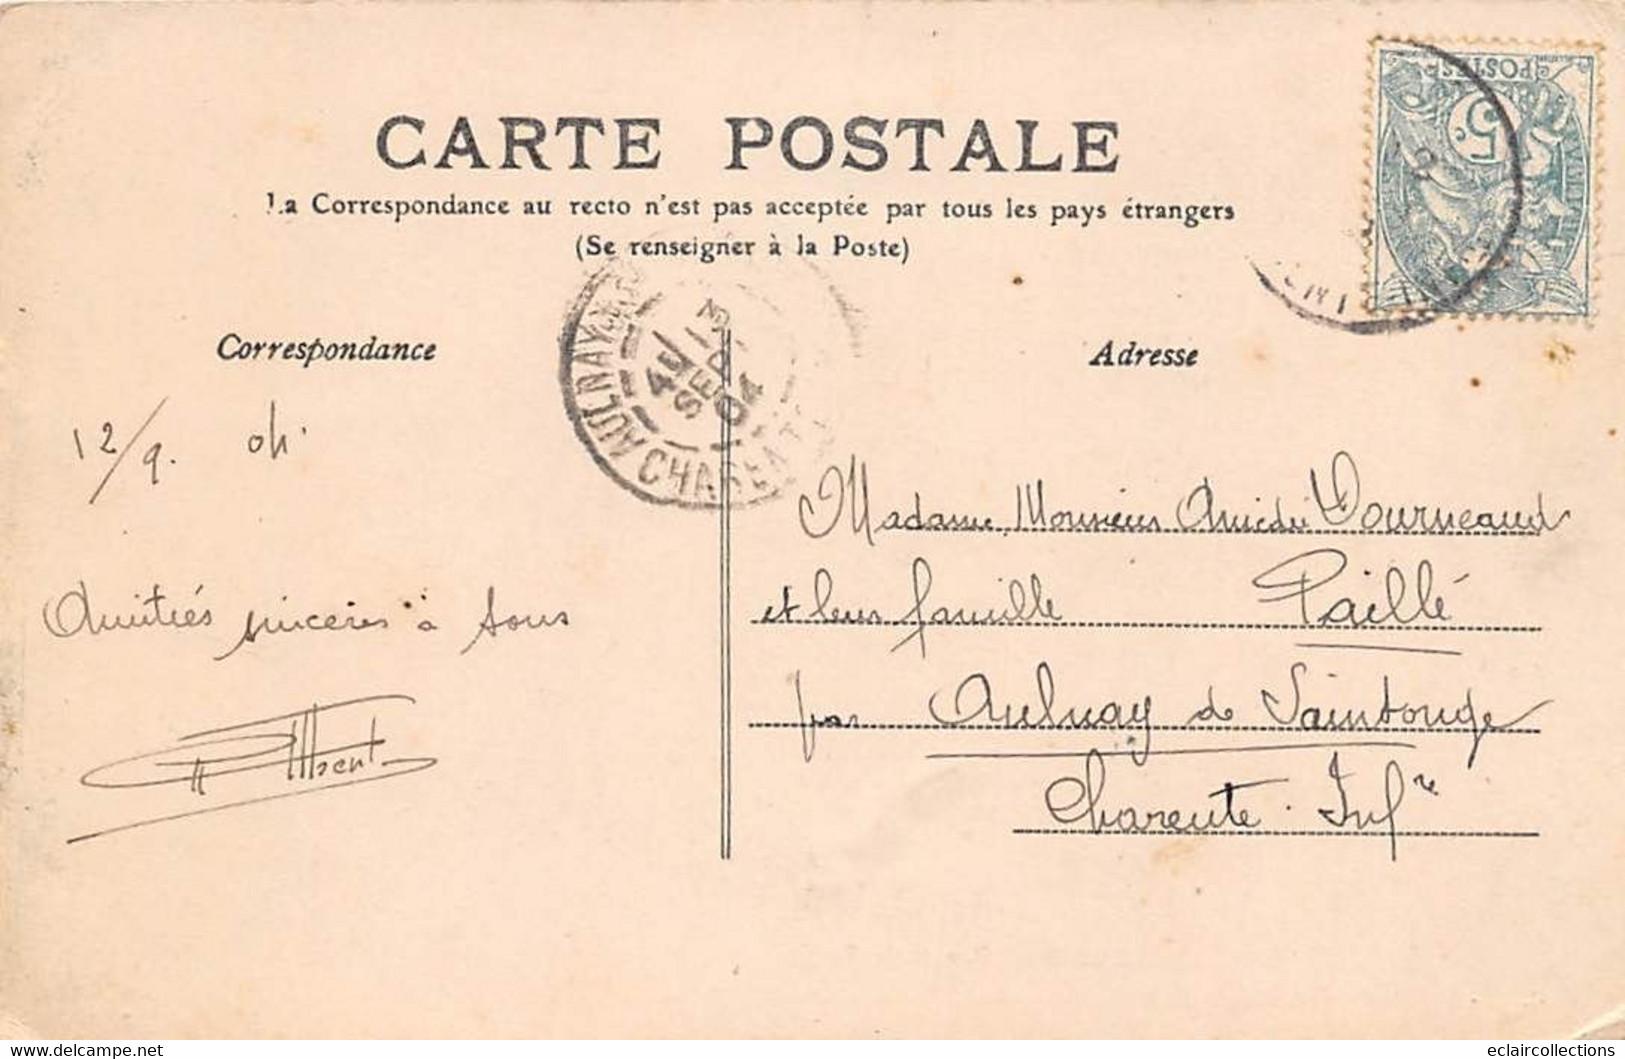 CARTE POSTALE
La Correspondance au recto n'est pas acceptée par tous les pays étrangers
(Se renseigner à la Poste)
POSTES
5c
Correspondance
Adresse
AULNAY
13
SEPT
04
12/9. 04.
Amitiés sincères à tous
Madame, Monsieur Amédée Fourneaud
et leur famille Paillé
par Aulnay de Saintonge
Charente. Infre
www.delcampe.net
eclaircollections